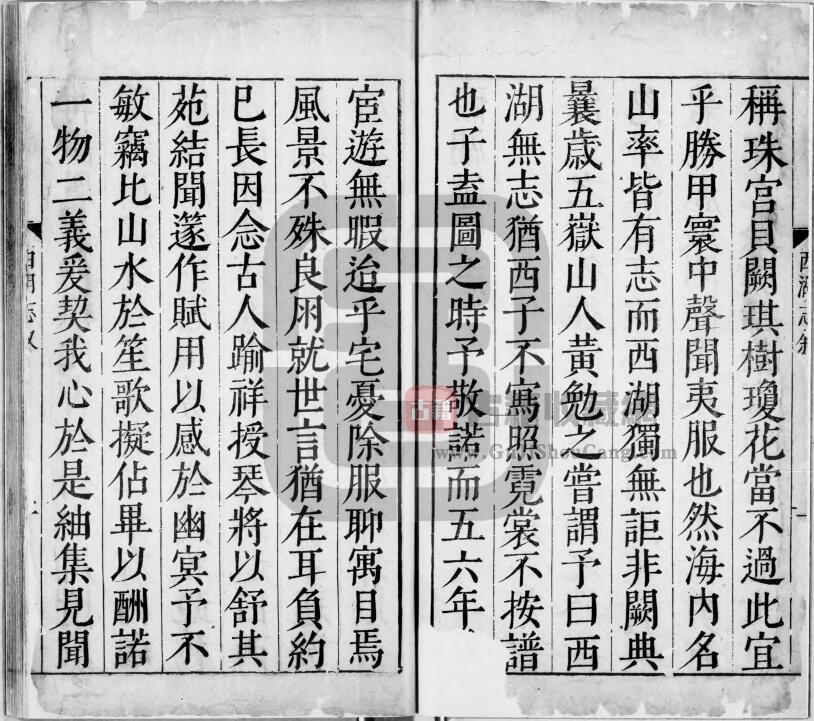 西湖志敘
稱珠宮貝闕琪樹瓊花當不過此宜
乎勝甲寰中聲聞夷服也然海内名
山率皆有志而西湖獨無詎非闕典
曩歲五嶽山人黃勉之嘗謂予曰西
湖無志猶西子不寫照霓裳不按譜
也子盍圖之時予敬諾而五六年
宦遊無暇迨乎宅憂除服聊寓目焉
風景不殊良朋就世言猶在耳負約
巳長因念古人踰祥授琴將以舒其
苑結聞篴作賦用以感於幽冥予不
敏竊比山水於笙歌擬佔畢以酬諾
一物二義爰契我心於是紬集見聞
古籍
www.GujiShouCang.com